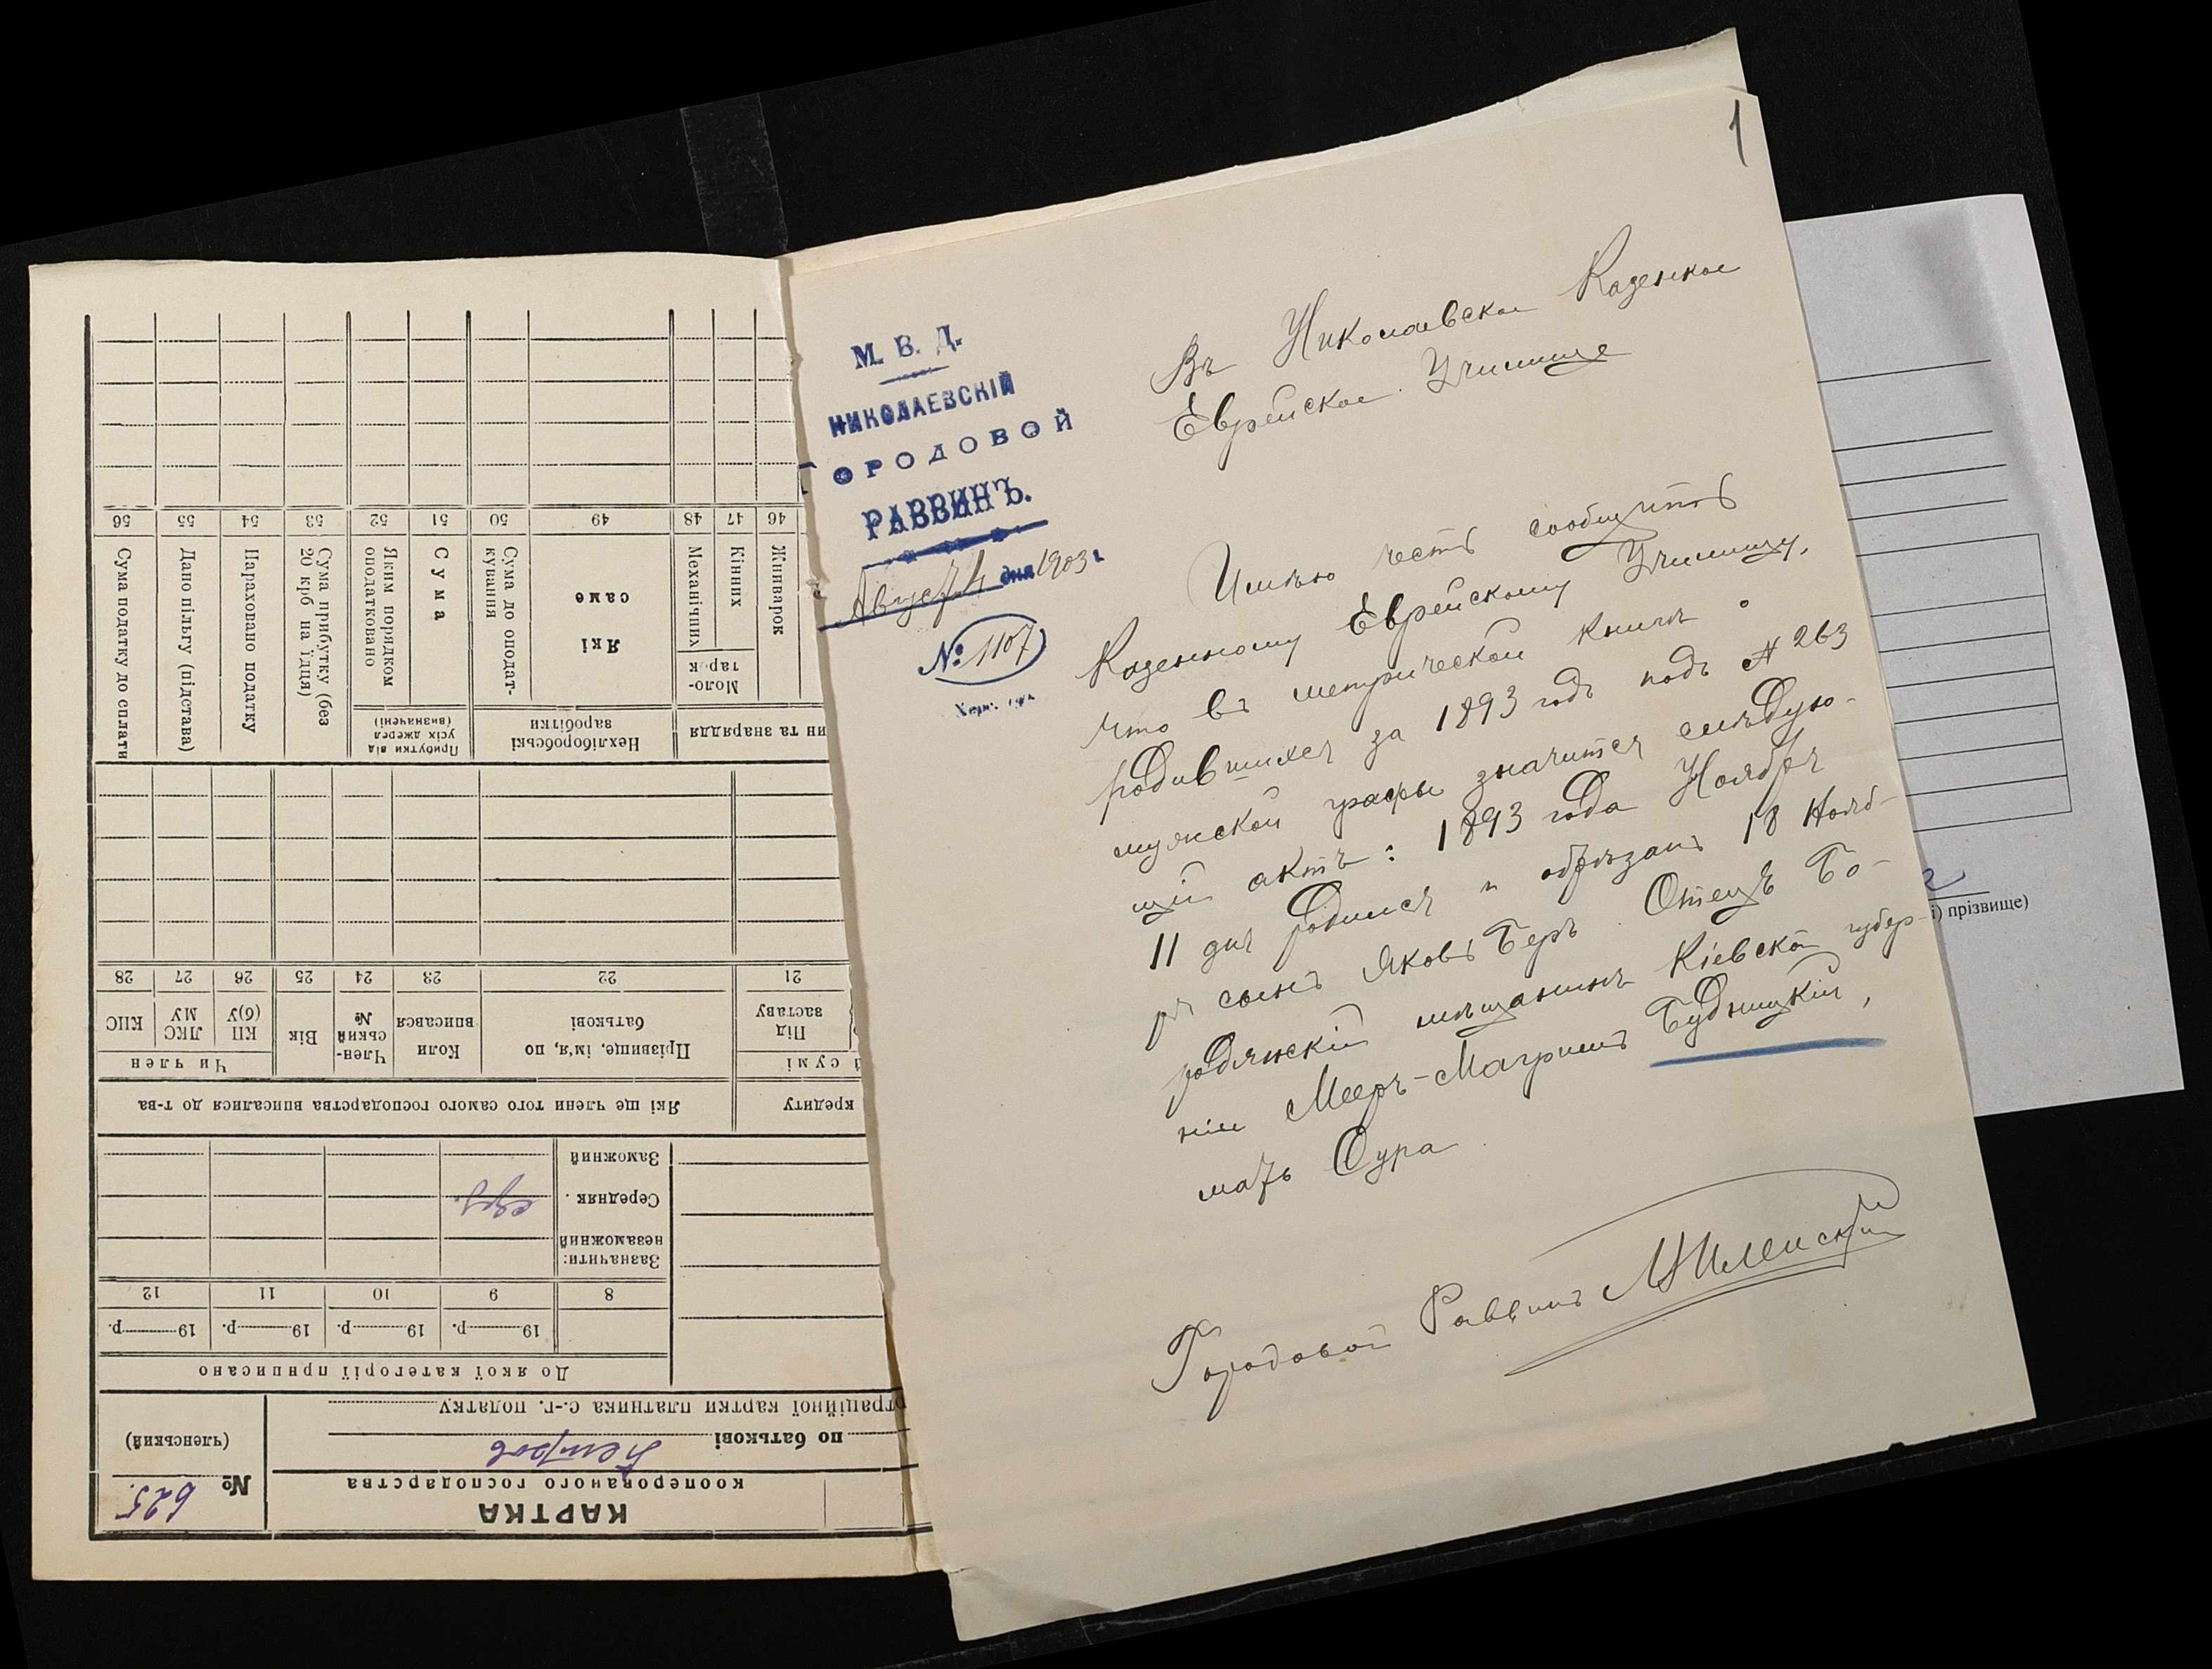 1
М. В. Д.
НИКОЛАЕВСКІЙ
ОРОДОВОЙ
РАВВИНЪ.
Август 4 дня 1903 г.
№ 1107
Херс. губ.
Въ Николаевское Казенное
Еврейское Училище
Имѣю честь сообщить
Казенному Еврейскому Училищу,
что въ метрической книгѣ о
родившихся за 1893 годъ подъ № 263
мужской графы значится слѣдую-
щій актъ: 1893 года Ноября
11 дня родился и обрѣзанъ 18 Нояб-
ря сынъ Яковъ Беръ. Отецъ Бо-
родянскій мѣщанинъ Кіевской губер-
ніи Мееръ-Маргулисъ Будницкій,
мать Сура.
Городовой Раввинъ
і) прізвище)
КАРТКА
кооперованого господарства
№ 625.
(членський)
по батькові Петров
траційної картки платника с.-г. податку
До якої категорії приписано
19 р. 19 р. 19 р. 19 р.
8 9 10 11 12
Зазначити:
незаможний
Середняк.
Заможний
кредиту
Які ще члени того самого господарства вписалися до т-ва
й сумі
Чи член
Під заставу
Прізвище, ім'я, по батькові
Коли вписався
Член-ський №
Вік
КП (б)У
ЛКС МУ
КНС
21 22 23 24 25 26 27 28
ин та знаряддя
Нехліборобські заробітки
Прибутки від усіх джерел (визначені)
Моло-тарок
Жниварок
Кінних
Механічних
Які саме
Сума до оподат-кування
Сума
Яким порядком оподатковано
Сума прибутку (без 20 крб на їдця)
Нараховано податку
Дано пільгу (підстава)
Сума податку до сплати
46 47 48 49 50 51 52 53 54 55 56